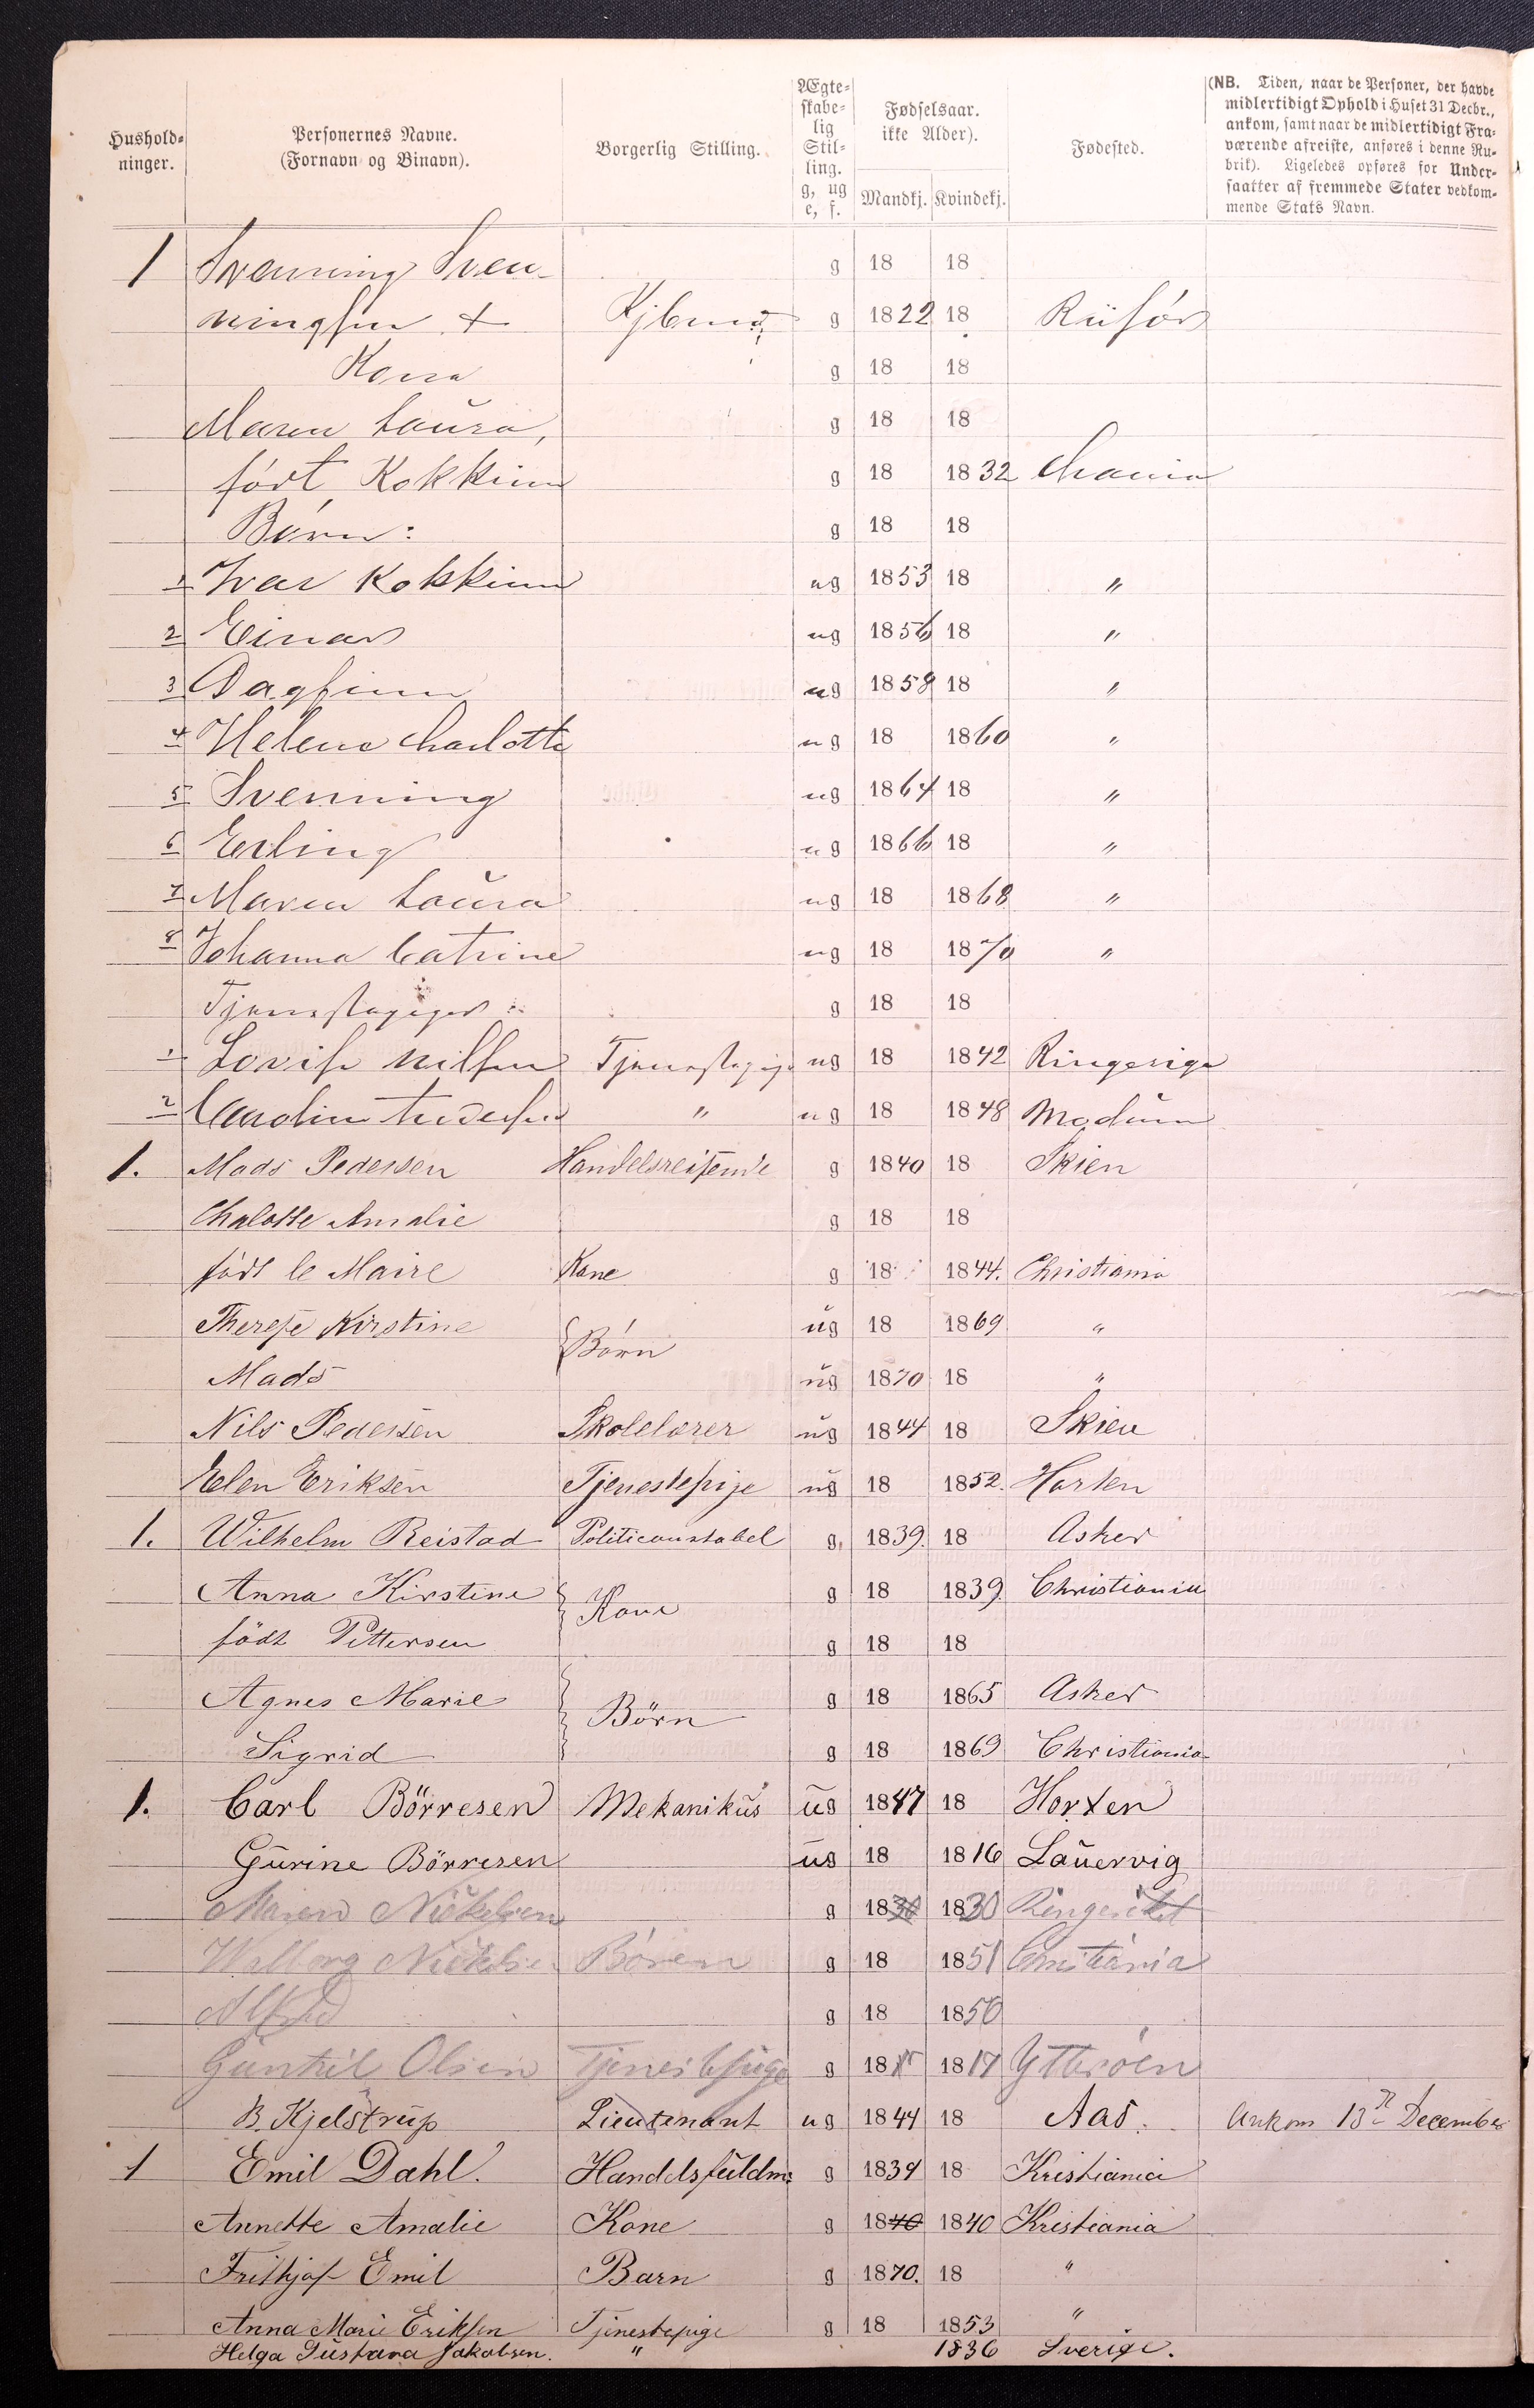 Hushold-
ninger.
Personernes Navne.
(Fornavn og Binavn).
Borgerlig Stilling.
Ægte-
skabe-
lig
Stil-
ling.
g, ug
e, f.
Fødselsaar.
ikke Alder).
Mandkj. Kvindekj.
Fødested.
(NB. Tiden, naar de Personer, der havde
midlertidigt Ophold i Huset 31 Decbr.,
ankom, samt naar de midlertidigt Fra-
værende afreiste, anføres i denne Ru-
brik). Ligeledes opføres for Under-
saatter af fremmede Stater vedkom-
mende Stats Navn.
1 Svenning Sven- g 18 18
ningsen + Kjbmd g 1822 18 Riisör
Kona g 18 18
Maren Laura, g 18 18
födt Kokkinn g 18 1832 Chania
Börn: g 18 18
1 Ivar Kokkinn ug 1853 18 "
2 Einar ug 1856 18 "
3 Dagfinn ug 1858 18 "
4 Helene Charlotte ug 18 1860 "
5 Svenning ug 1864 18 "
6 Erling ug 1866 18 "
7 Maren Laura ug 18 1868 "
8 Johanna Catrine ug 18 1870 "
Tjenestepiger: g 18 18
1 Lovise Nilsen Tjenestepige ug 18 1842 Ringerige
2 Carolin " ug 18 1848 Modum
1. Mads Pedersen Handelsreisende g 1840 18 Skien
Chalotte Amalie g 18 18
født le Maire Kone g 18 1844. Christiania
Therese Kirstine ug 18 1869 "
Börn
Mads ug 1870 18 "
Nils Pedersen Skolelærer ug 1844 18 Skien
Elen Eriksen Tjenestepige ug 18 1852. Horten
1. Wilhelm Reistad Politiconstabel g. 1839. 18 Asker
Anna Kirstine g 18 1839. Christiania
Kone
födt Pettersen g 18 18
Agnes Marie g 18 1865 Asker
Börn
Sigrid g 18 1869 Christiania
1. Carl Börresen Mekanikus ug 1847 18 Horten
Gurine Börresen ug 18 1816 Laurvig
Maren Nickelsen g 1830 1830 Ringeriket
Walborg Nickelsen Börn g 18 1851 Cristiania
Alfred g 18 1850
Gunhil Olsen Tjenestepige g 18 1817 Ytteröen
B. Kjelstrup Lieutenant ug 1844 18 Aas. Ankom 13de December
1 Emil Dahl. Handelsfuldm: g 1839 18 Kristiania
Annette Amalie Kone g 1840 1840 Kristiania
Frithjof Emil Barn g 1870. 18 "
Anna Marie Eriksen Tjenestepige g 18 1853 "
Helga Gustava Jakobsen. " 1836 Sverige.